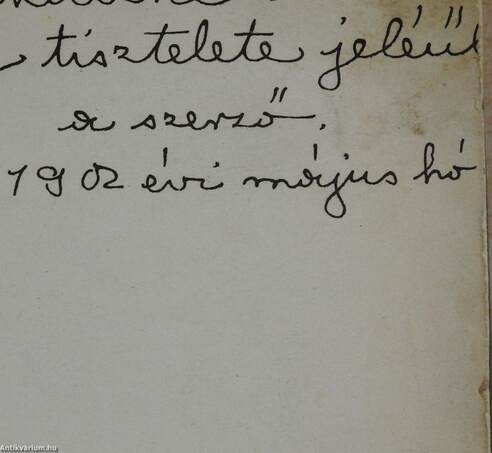 tisztelete jeléül
a szerző.
1902 évi május hó
Antikvarium.hu